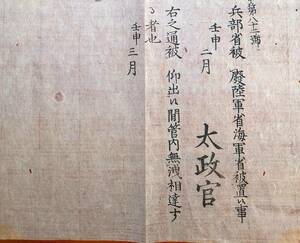 第八十二號
兵部省被 廢陸軍省海軍省被置候事
壬申 二月
太政官
右之通被 仰出候間管内無洩相達す
る者也
壬申 三月